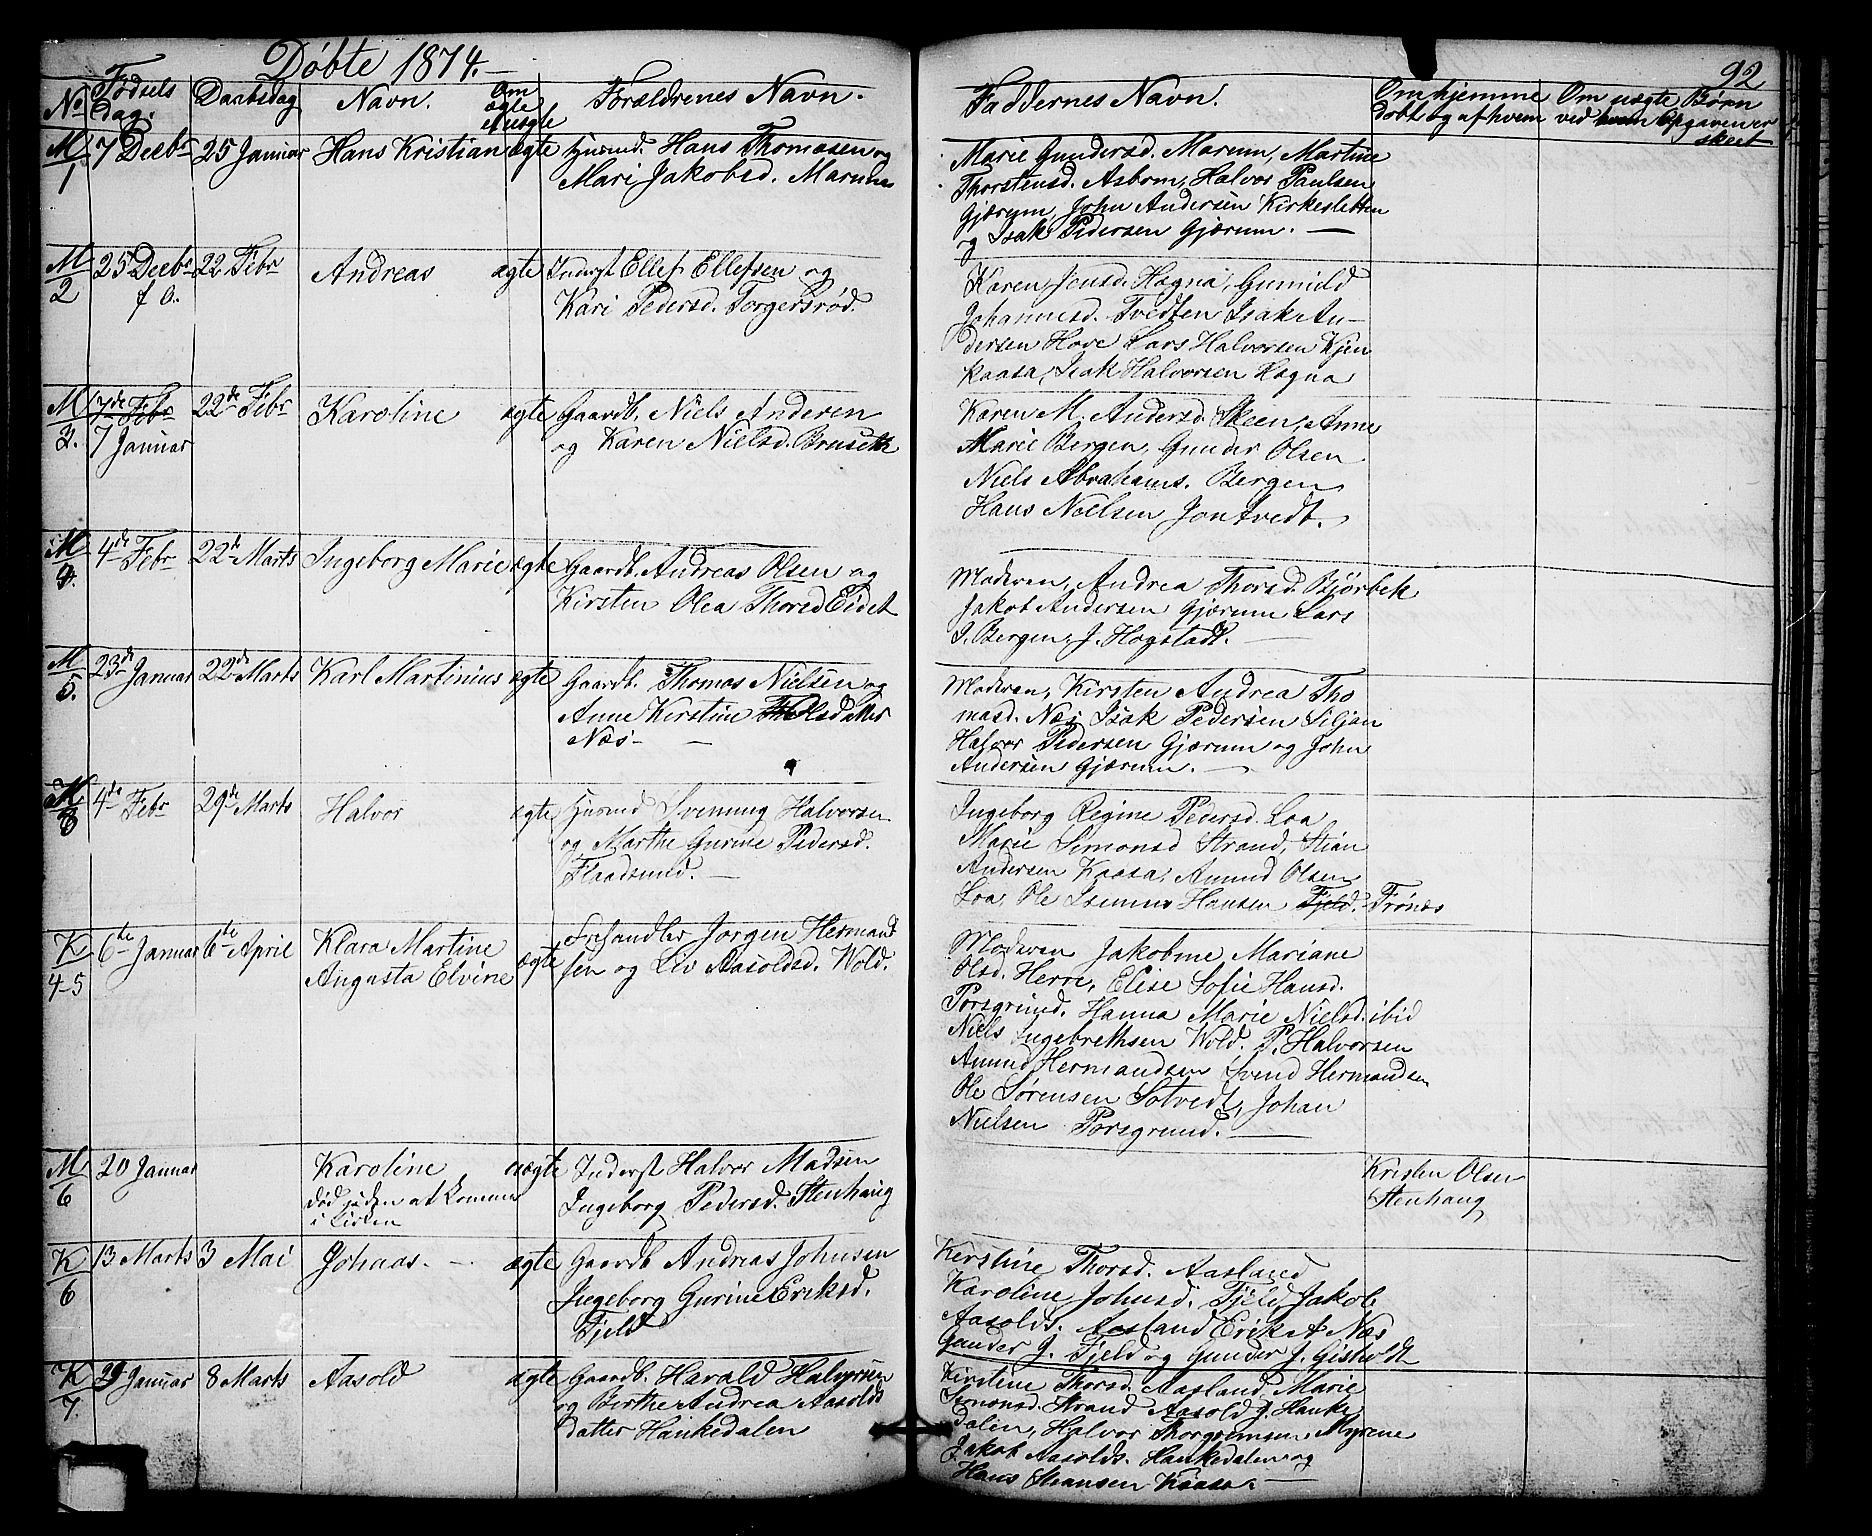 Døbte 1874.
92
No
Fødsels
dag.
Daabsdag
Navn.
Om
ægte
el uægte
Forældrenes Navn.
Faddernes Navn.
Om hjemme
døbt og af hvem
Om uægte Børn
ved Opgaven er
skeet
M
1
7 Decbr
25 Januar
Hans Kristian
ægte
Husmd. Hans Thomasen og
Mari Jakobsd. Marum
Marie Gundersd. Marum, Martine
Thorstensd. Asbom, Halvor Paulsen
Gjærum, John Andersen Kirkesletten
og Isak Pedersen Gjærum. —
M
2
25 Decbr
f A.
22 Febr
Andreas
ægte
Inderst Ellef Ellefsen og
Kari Pedersd. Torgersrød.
Karen Jensd. Hogna, Gunnild
Johannesd. Tvedten Isak An-
dersen Hove Lars Halvorsen Kjen
kaasa, Isak Halvorsen Hogna
M
3.
17de Febr
7 Januar
22de Febr
Karoline
ægte
Gaardb. Niels Anderen
og Karen Nielsd. Bruseth
Karen M. Andersd. Skeen, Anne
Marie Bergen, Gunder Olsen
Niels Abrahams. Bergen
Hans Nielsen Jontvedt.
M
4.
4de Febr
22de Marts
Ingeborg Marie
ægte
Gaardb. Andreas Olsen og
Kirsten Olea Thorsd Eidet
Moderen, Andrea Thorsd. Bjørbek
Jakob Andersen Gjærum Lars
J. Bergen, J. Hogstadt. —
M
5.
23de Januar
22de Marts
Karl Martinius
ægte
Gaardb. Thomas Nielsen og
Anne Kirstine Olsdatter
Næs —
Moderen, Kirsten Andrea Tho
masd. Næs Isak Pedersen Siljan
Halvor Pedersen Gjærum og John
Andersen Gjærum. —
4de Febr
29de Marts
Halvor
ægte
Husmd Svenning Halvorsen
og Marthe Gurine Pedersd.
Flaadsund. —
Ingeborg Regine Pedersd. Loa
Marie Simonsd Strand, Stian
Andersen Kaasa, Amund Olsen
Loa, Ole Hansen Fjeld. Frønæs
K
4-5
6te Januar
6te April
Klara Martine
Augusta Elvine
ægte
Jørgen Hermand
sen og Liv Aasoldsd. Wold.
Moderen Jakobine Mariane
Olsd. Herre, Elise Sofie Hansd.
Porsgrund. Hanna Marie Nielsd. ibid
Niels Ingebrethsen Wold. P. Halvorsen
Amund Hermandsen Svend Hermandsen
Ole Sørensen Sotvedt, Johan
Nielsen Porsgrund. —
M
6
20 Januar
Karoline
død uden at komme
i Kirken
uægte
Inderst Halvor Madsen
Ingeborg Pedersd. Stenhaug
Kristen Olsen
Stenhaug
K
6
13 Marts
3 Mai
Johnas. —
ægte
Gaardb Andreas Johnsen
Ingeborg Gurine Eriksd.
Fjeld
Kerstine Thorsd. Aasland
Karoline Johnsd. Fjeld, Jakob
Aasolds. Aasland Erik A Næs
Gunder J. Fjeld og Gunder J. Gisholdt
K
7
29 Januar
8 Marts
Aasold
ægte
Gaardb. Harald Halvorsen
og Birthe Andrea Aasolds
datter Hankedalen
Kirstine Thorsd. Aasland, Marie
Simonsd. Strand Aasold J. Hanke
dalen, Halvor Thorgrimsen, Myrene
Jakob Aasolds. Hankedalen og
Hans Kaasa. —